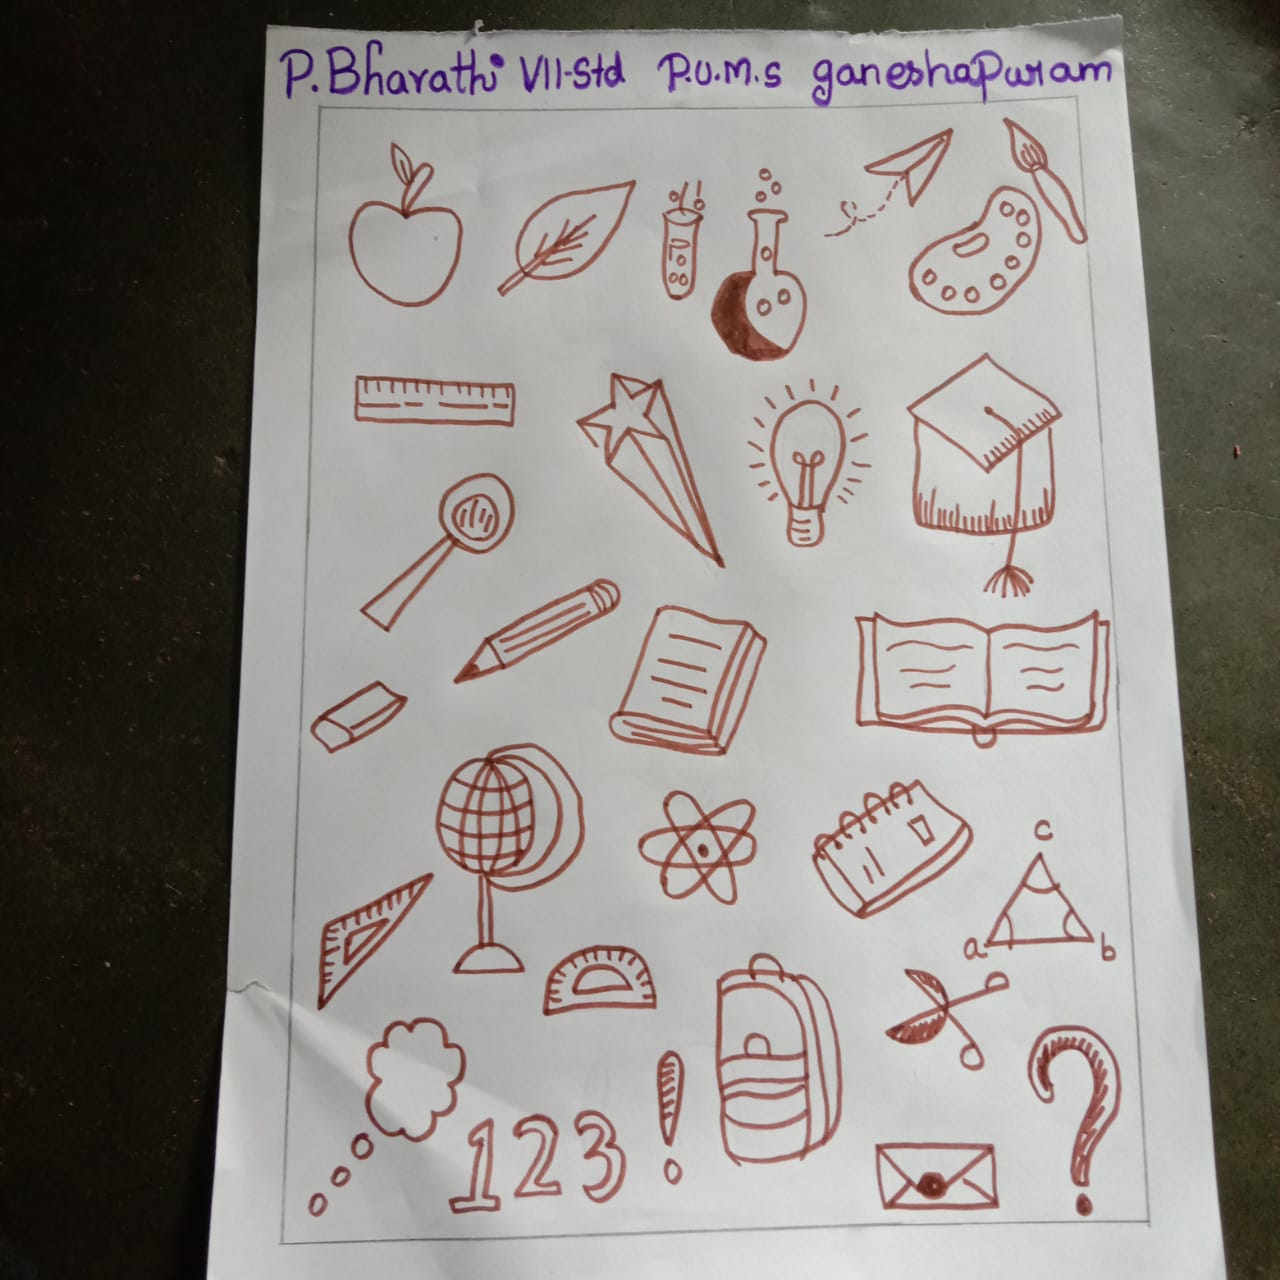 P.Bharathi VII-Std P.U.M.S ganeshapuram
c
a b
123 ! ?